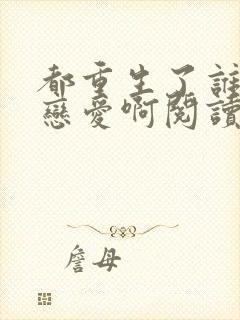 都重生了誰
戀愛啊閱讀
詹母